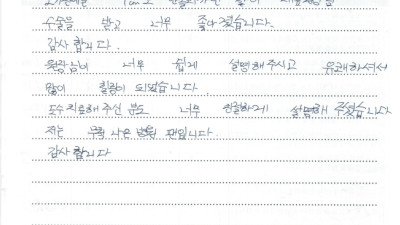 수술을 받고 너무 좋아졌습니다.
감사합니다.
원장님이 너무 쉽게 설명해주시고 유쾌하셔서
많이 힐링이 되었습니다.
도수치료해주신 분도 너무 친절하게 설명해 주셨습니다
저는 나은 병원 팬입니다.
감사합니다